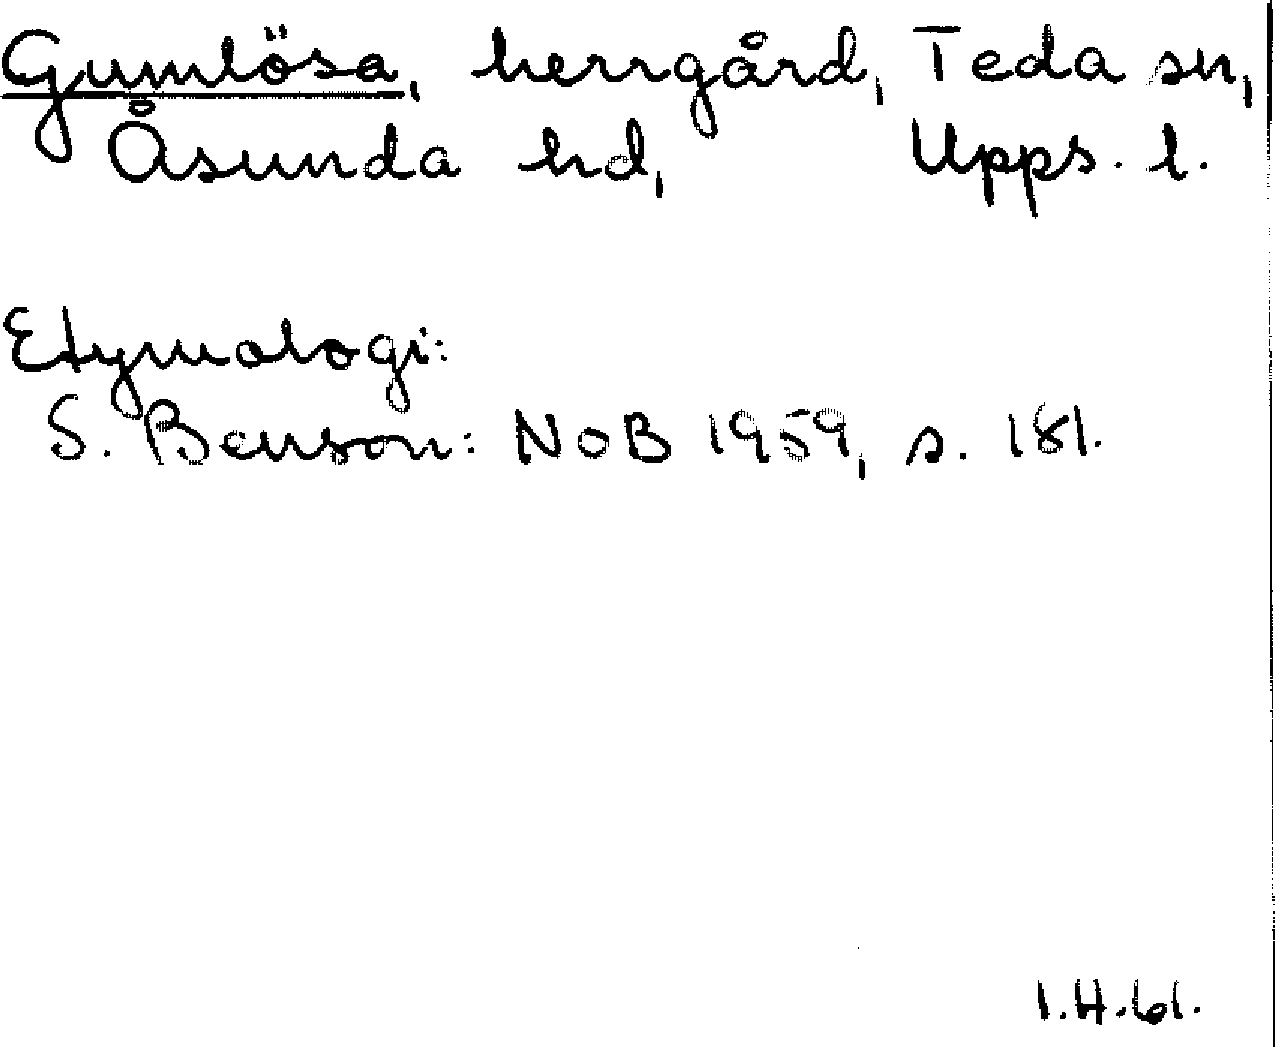 Gumlösa, herrgård, Teda sn,
Åsunda hd, Upps. l.
Etymologi:
S. Benson: NoB 1959, s. 181.
I.H.61.